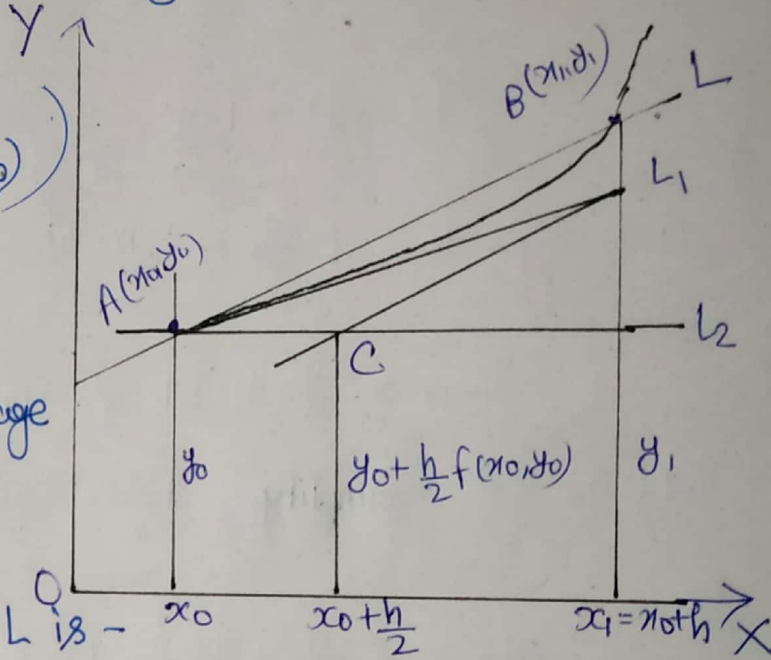 Y
B(x1,y1)
L
L1
A(x0,y0)
L2
C
y0
y0+h/2 f(x0,y0)
y1
O
x0
x0+h/2
x1=x0+h
X
L is -